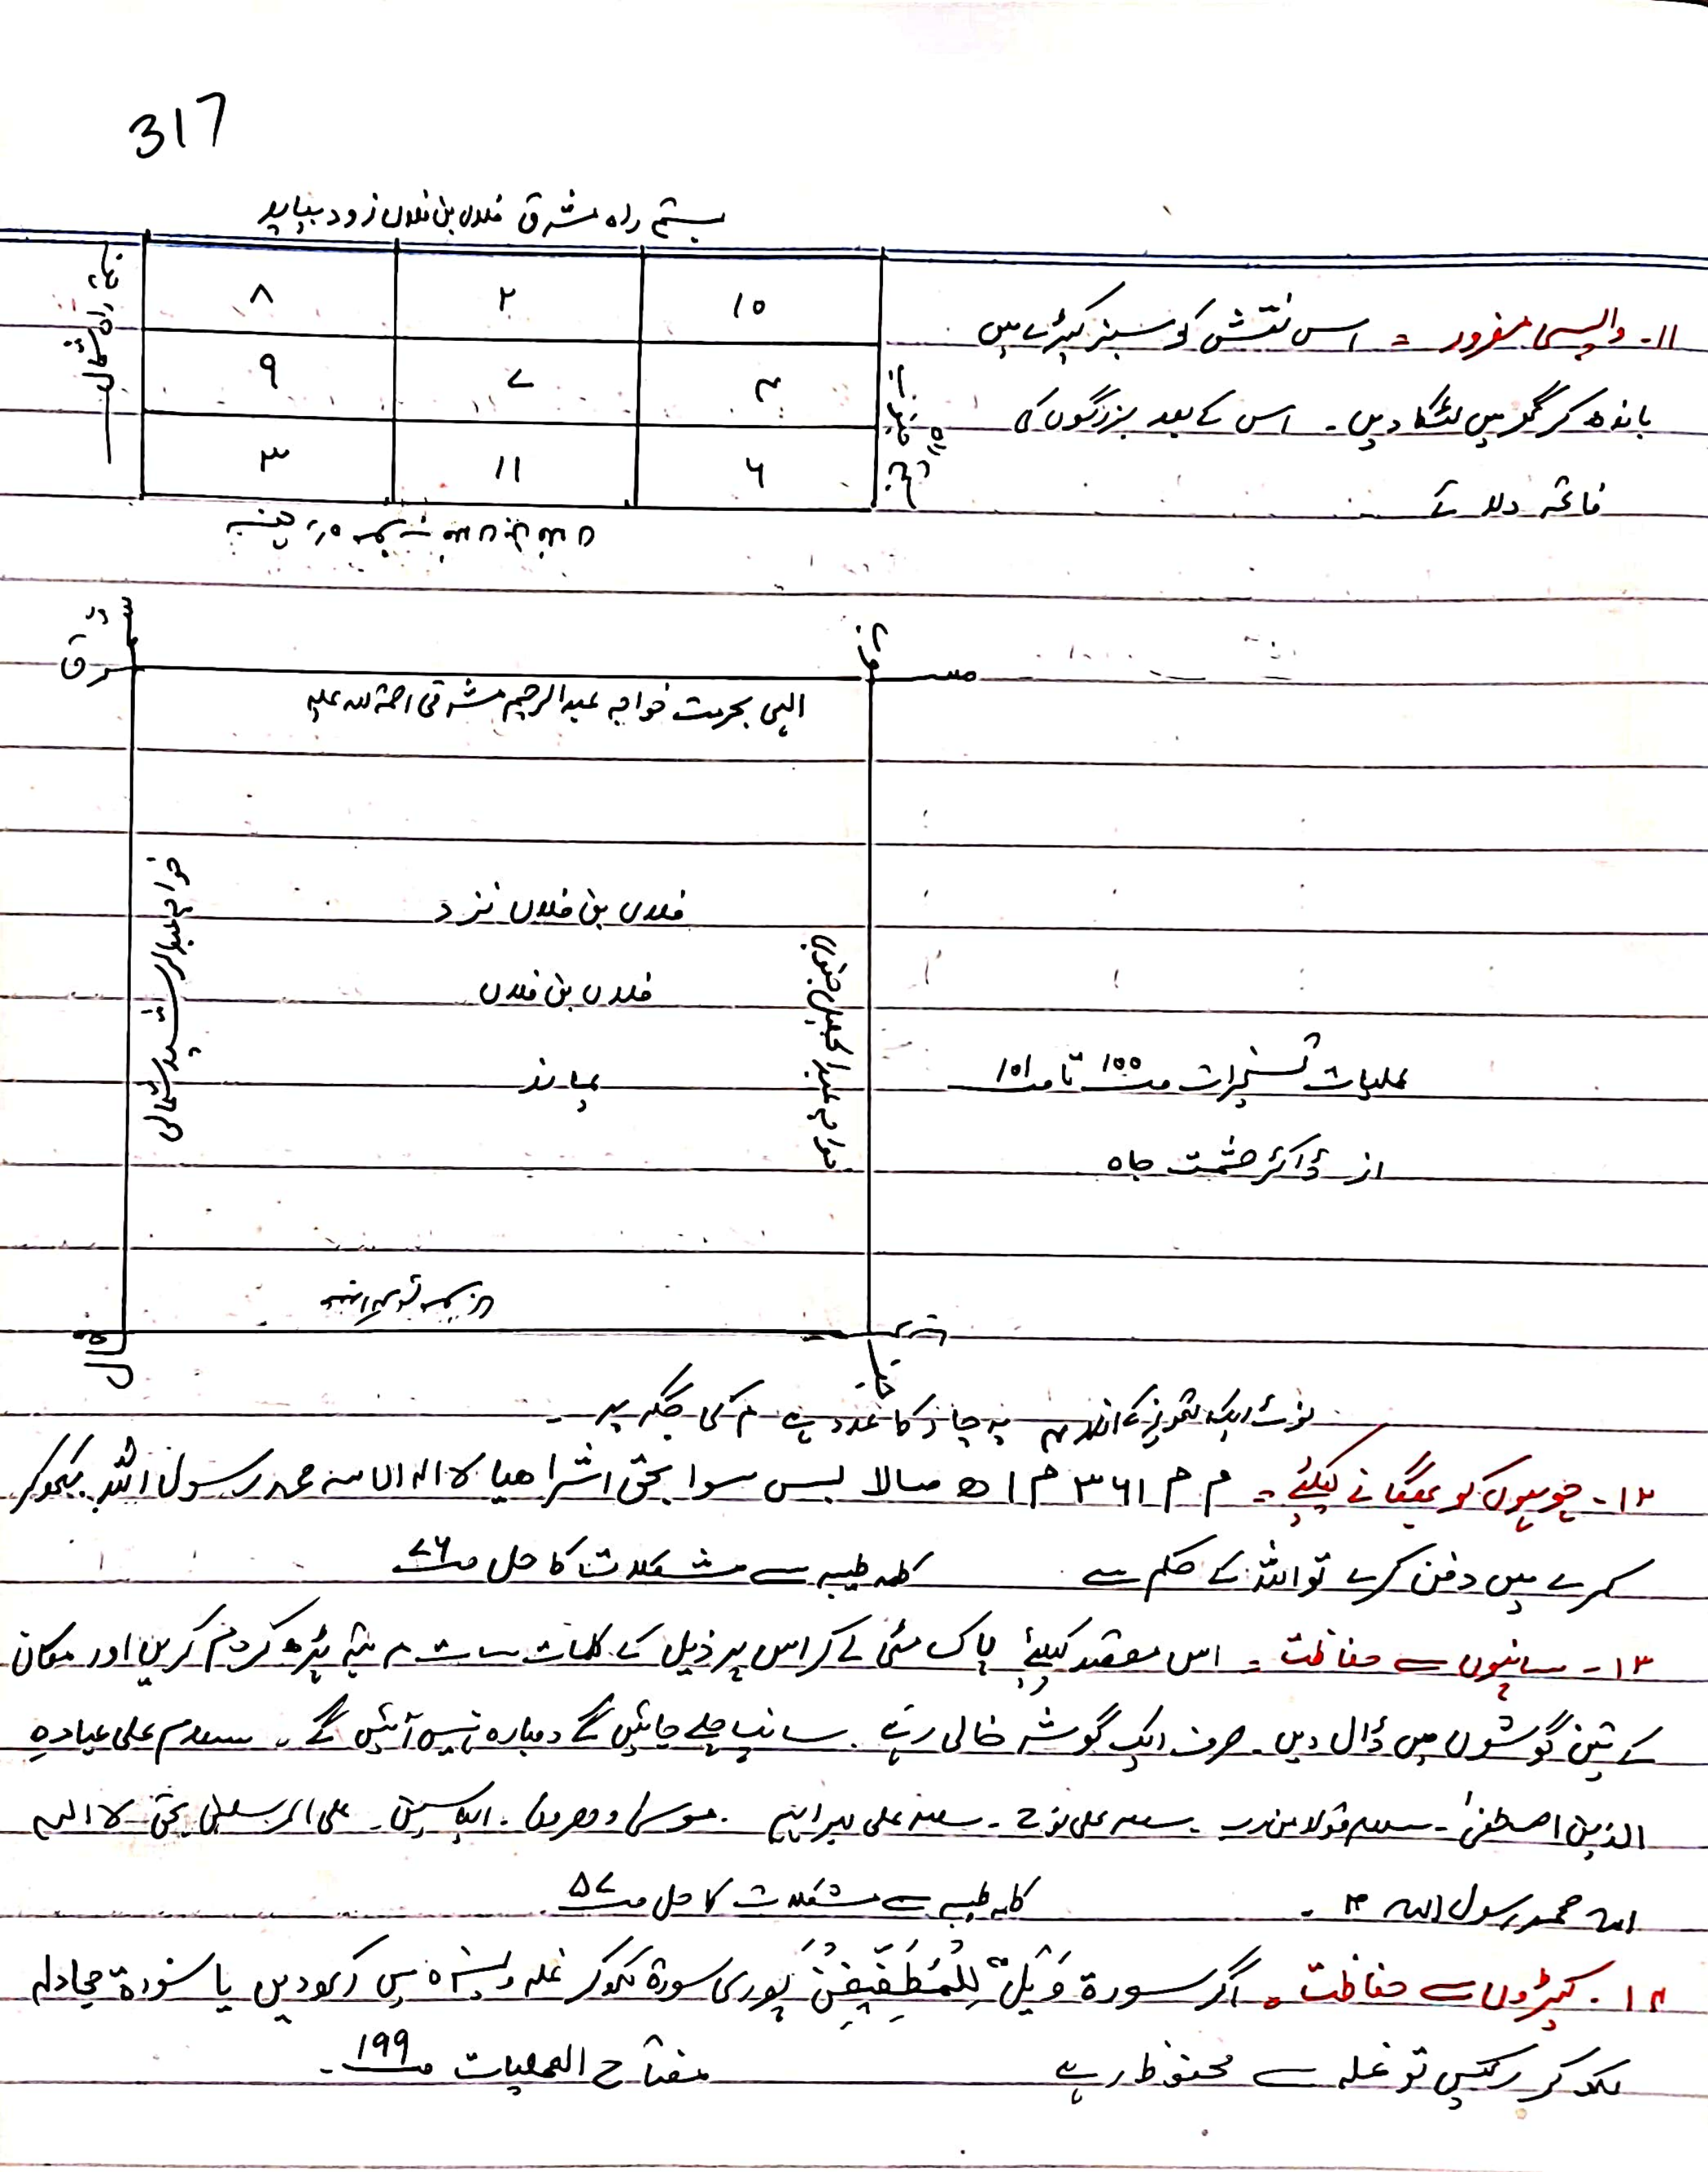 317
بستم راه مشرق فلاں بن فلاں زود بیاید
۸ ۲ ۱۰
۹ ۷ ۴
۳ ۱۱ ۶
۱۱۔ واپسی مفرور = اس نقش کو سبز کپڑے میں
باندھ کر گھر میں لٹکا دیں۔ اس کے بعد بزرگوں کی
فاتحہ دلائے
مشرق
الہی بحرمت خواجہ عبدالرحیم مشرقی رحمۃ اللہ علیہ
خواجہ عبدالرشید شمالی
فلاں بن فلاں نزد
فلاں بن فلاں
بیاید
خواجہ عبدالجلیل جنوبی
عملیات تسخیرات ص ۱۰۰ تا ص ۱۰۱
از ڈاکٹر حشمت جاہ
شمال
نوٹ ایک تعویز کے اندر ۴ یہ چار کا عدد ہے م کی جگہ پر۔
۱۲۔ چوہوں کو بھگانے کیلئے = م م ۳۶۱ م ۱ ھ سالا بس سوا بحق اشراھیا لا الہ الا اللہ محمد رسول اللہ لکھ کر
کمرے میں دفن کرے تو اللہ کے حکم سے کلمہ طیبہ سے مشکلات کا حل ص ۷۶
۱۳۔ سانپوں سے حفاظت = اس مقصد کیلئے پاک مٹی لے کر اس پر ذیل کے کلمات سات مرتبہ پڑھ کر دم کریں اور مکان
کے تین گوشوں میں ڈال دیں۔ صرف ایک گوشہ خالی رہے۔ سانپ چلے جائیں گے دوبارہ نہیں آئیں گے۔ سلام علی عبادہ
الذین اصطفیٰ۔ سلام قولا من رب۔ سلام علی نوح۔ سلام علی ابراہیم۔ موسی و ھرون۔ الیاسین۔ علی المرسلین بحق لا الہ
اللہ محمد رسول اللہ کلمہ طیبہ سے مشکلات کا حل ص ۵۷
۱۴۔ کیڑوں سے حفاظت = اگر سورۃ وَیْلٌ لِلْمُطَفِّفِیْنَ پوری سورۃ لکھ کر غلہ وغیرہ میں رکھ دیں یا سورۃ مجادلہ
لکھ کر رکھیں تو غلہ سے محفوظ رہے مفتاح العملیات ص ۱۹۹۔